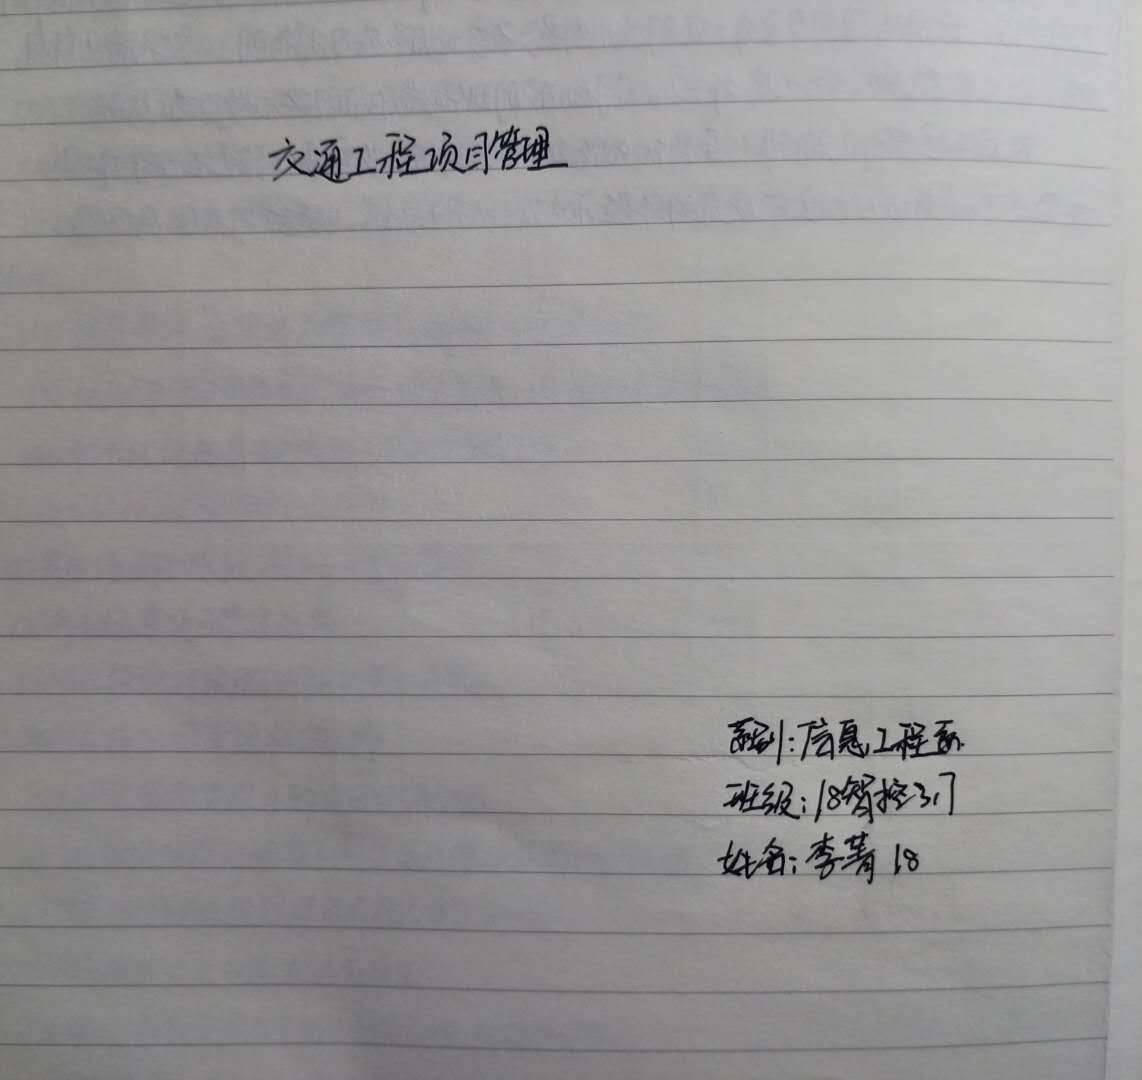 交通工程项目管理
系别：信息工程系
班级：18智控3,7
姓名：李菁 18